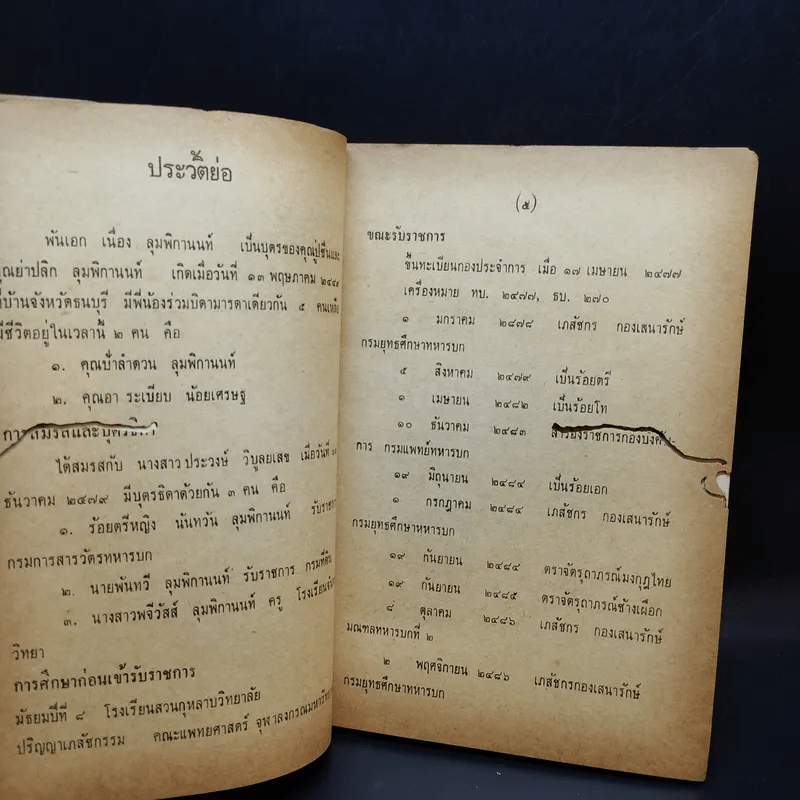 ประวัติย่อ
พันเอก เนื่อง ลุมพิกานนท์ เป็นบุตรของคุณปู่ชื่นและ
คุณย่าปลิก ลุมพิกานนท์ เกิดเมื่อวันที่ ๑๓ พฤษภาคม
ที่บ้านจังหวัดธนบุรี มีพี่น้องร่วมบิดามารดาเดียวกัน ๕ คนเหลือ
มีชีวิตอยู่ในเวลานี้ ๒ คน คือ
๑. คุณป้าลำดวน ลุมพิกานนท์
๒. คุณอา ระเบียบ น้อยเศรษฐ
การสมรสและบุตรธิดา
ได้สมรสกับ นางสาว ประวงษ์ วิบูลยเสข เมื่อวันที่
ธันวาคม ๒๔๗๙ มีบุตรธิดาด้วยกัน ๓ คน คือ
๑. ร้อยตรีหญิง นันทวัน ลุมพิกานนท์ รับราชการ
กรมการสารวัตรทหารบก
๒. นายพันทวี ลุมพิกานนท์ รับราชการ กรมที่ดิน
๓. นางสาวพจีวัสส์ ลุมพิกานนท์ ครู โรงเรียน
วิทยา
การศึกษาก่อนเข้ารับราชการ
มัธยมปีที่ ๘ โรงเรียนสวนกุหลาบวิทยาลัย
ปริญญาเภสัชกรรม คณะแพทยศาสตร์ จุฬาลงกรณมหาวิทยา
(๕)
ขณะรับราชการ
ขึ้นทะเบียนกองประจำการ เมื่อ ๑๗ เมษายน ๒๔๗๗
เครื่องหมาย ทบ. ๒๔๗๗, ธบ. ๒๗๐
๑ มกราคม ๒๘๗๘ เภสัชกร กองเสนารักษ์
กรมยุทธศึกษาทหารบก
๕ สิงหาคม ๒๔๗๙ เป็นร้อยตรี
๑ เมษายน ๒๔๘๒ เป็นร้อยโท
๑๐ ธันวาคม ๒๔๘๓ สำรองราชการกองบังคับ-
การ กรมแพทย์ทหารบก
๑๙ มิถุนายน ๒๔๘๔ เป็นร้อยเอก
๑ กรกฎาคม ๒๔๘๔ เภสัชกร กองเสนารักษ์
กรมยุทธศึกษาทหารบก
๑๙ กันยายน ๒๔๘๔ ตราจัตรุถาภรณ์มงกุฎไทย
๑๙ กันยายน ๒๔๘๕ ตราจัตรุถาภรณ์ช้างเผือก
๘ ตุลาคม ๒๔๘๖ เภสัชกร กองเสนารักษ์
มณฑลทหารบกที่ ๒
๒ พฤศจิกายน ๒๔๘๖ เภสัชกรกองเสนารักษ์
กรมยุทธศึกษาทหารบก